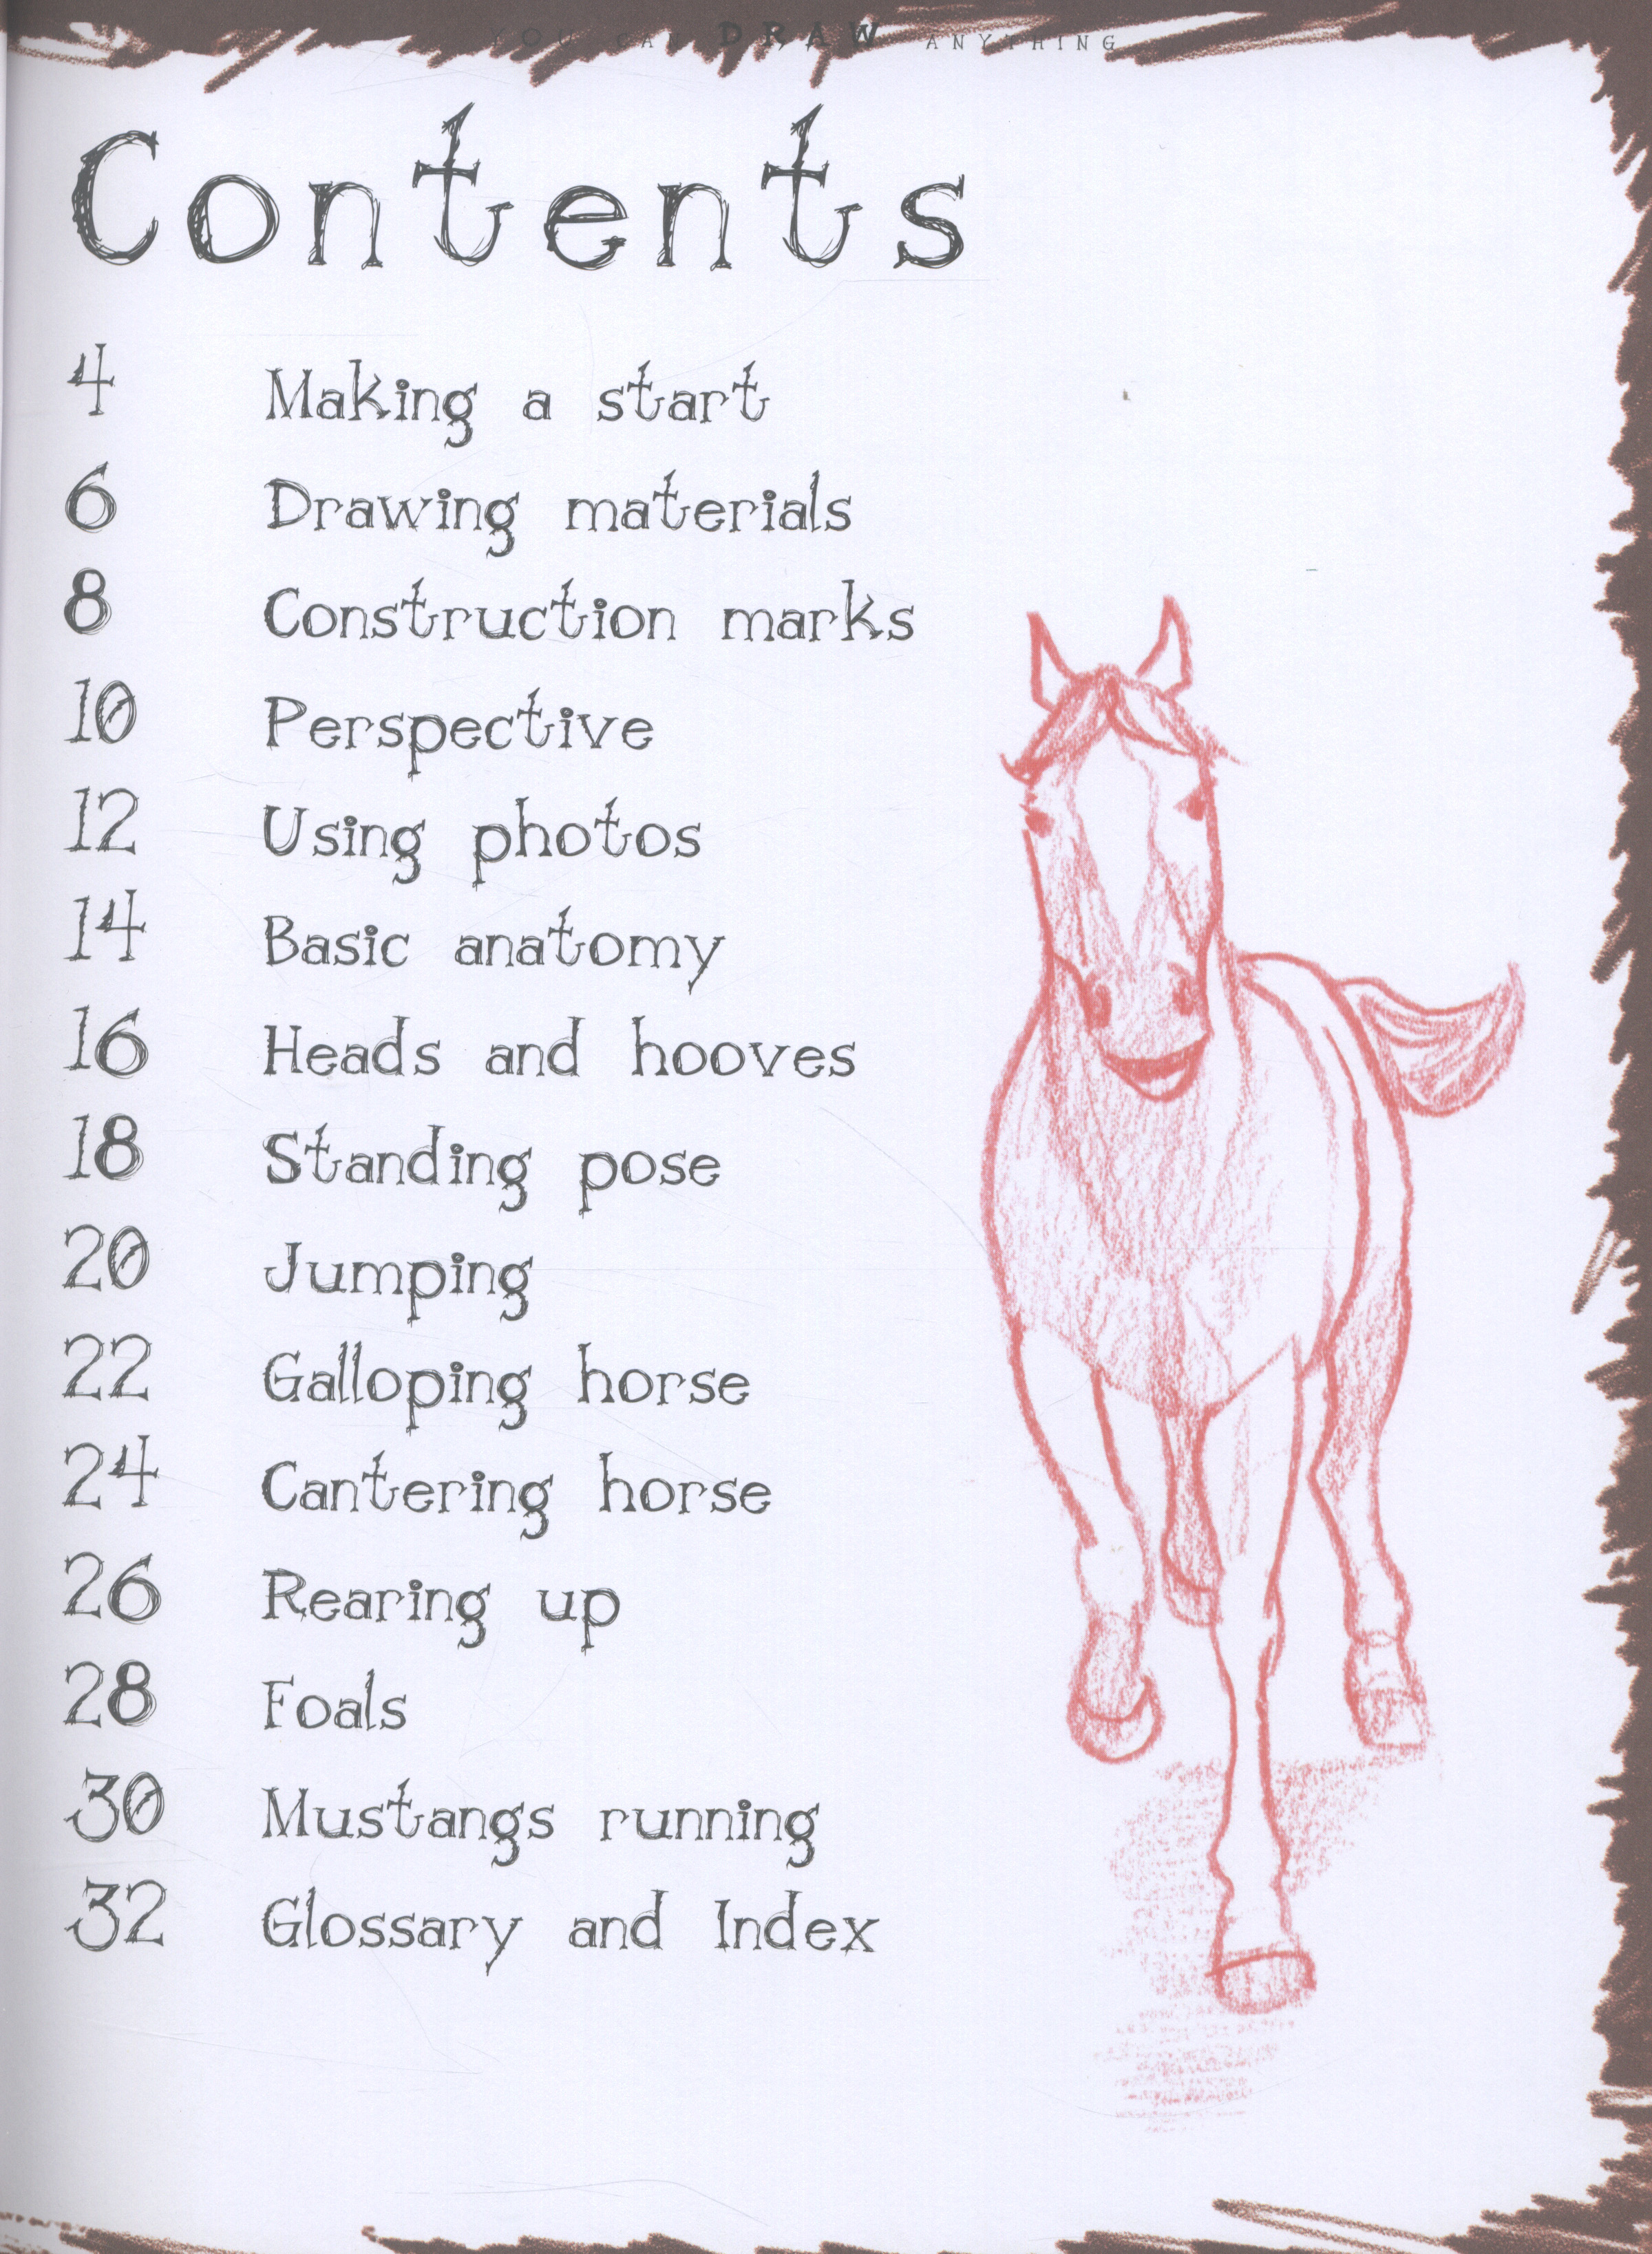 YOU CAN DRAW ANYTHING
Contents
4 Making a start
6 Drawing materials
8 Construction marks
10 Perspective
12 Using photos
14 Basic anatomy
16 Heads and hooves
18 Standing pose
20 Jumping
22 Galloping horse
24 Cantering horse
26 Rearing up
28 Foals
30 Mustangs running
32 Glossary and Index